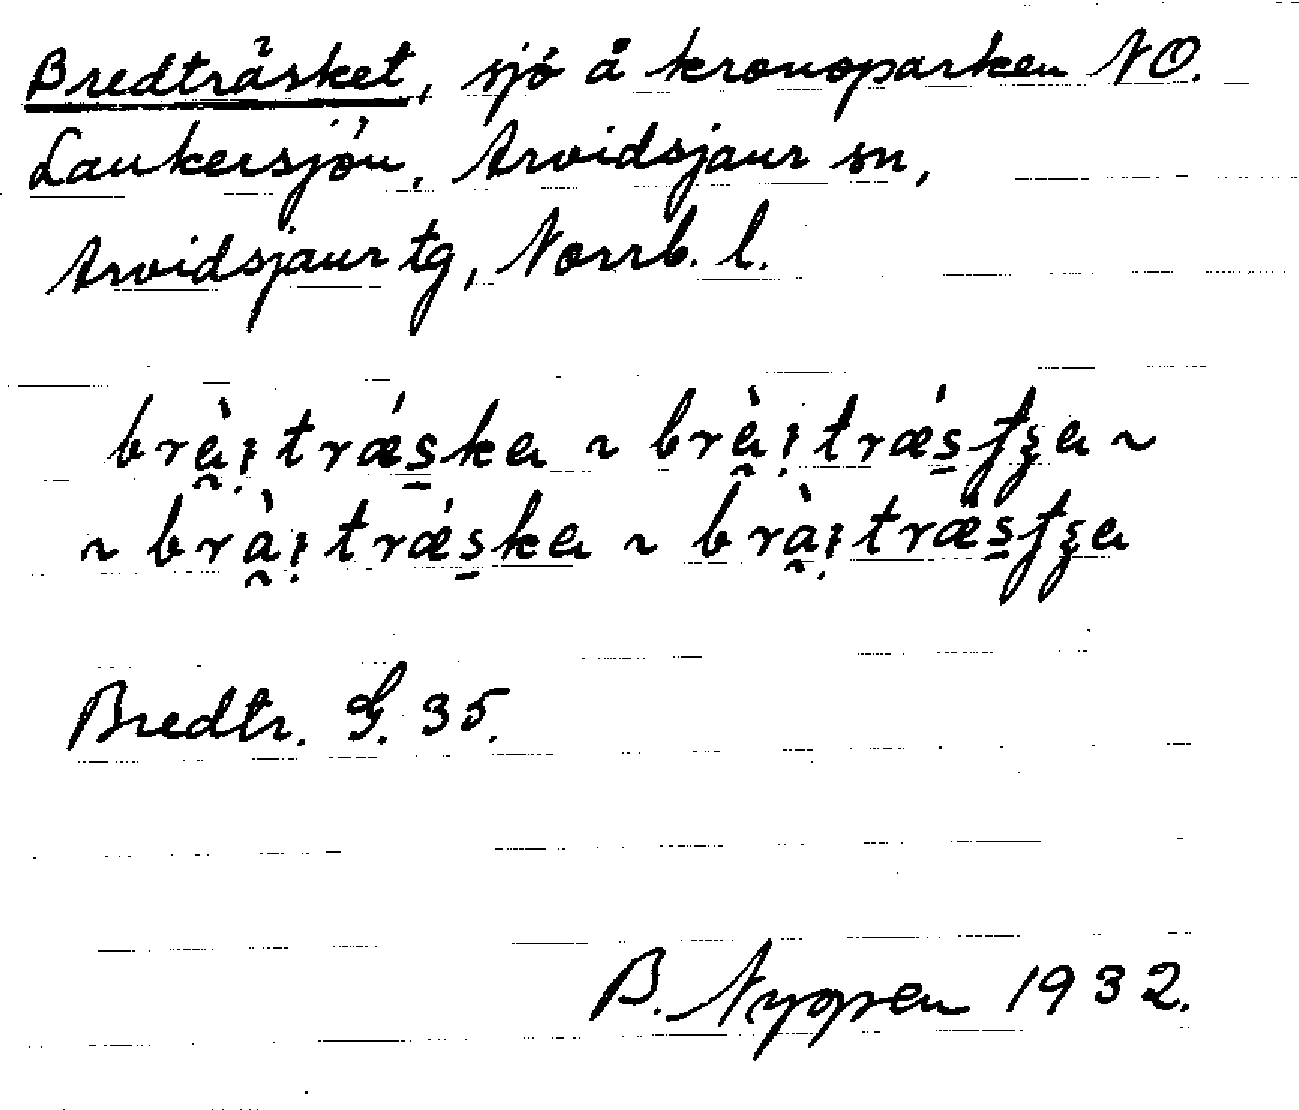 Bredträsket, sjö å kronoparken NO.
Laukersjön, Arvidsjaur sn,
Arvidsjaur tg, Norrb. l.
brḛ̀ı̣ trǽs̱ka ~ brḛ̀ı̣ trǽs̱ʄʓa ~
~ brà̰ı̣ trǽs̱ka ~ brà̰ı̣ trǽs̱ʄʓa
Bredtr. G. 35.
B. Nygren 1932.